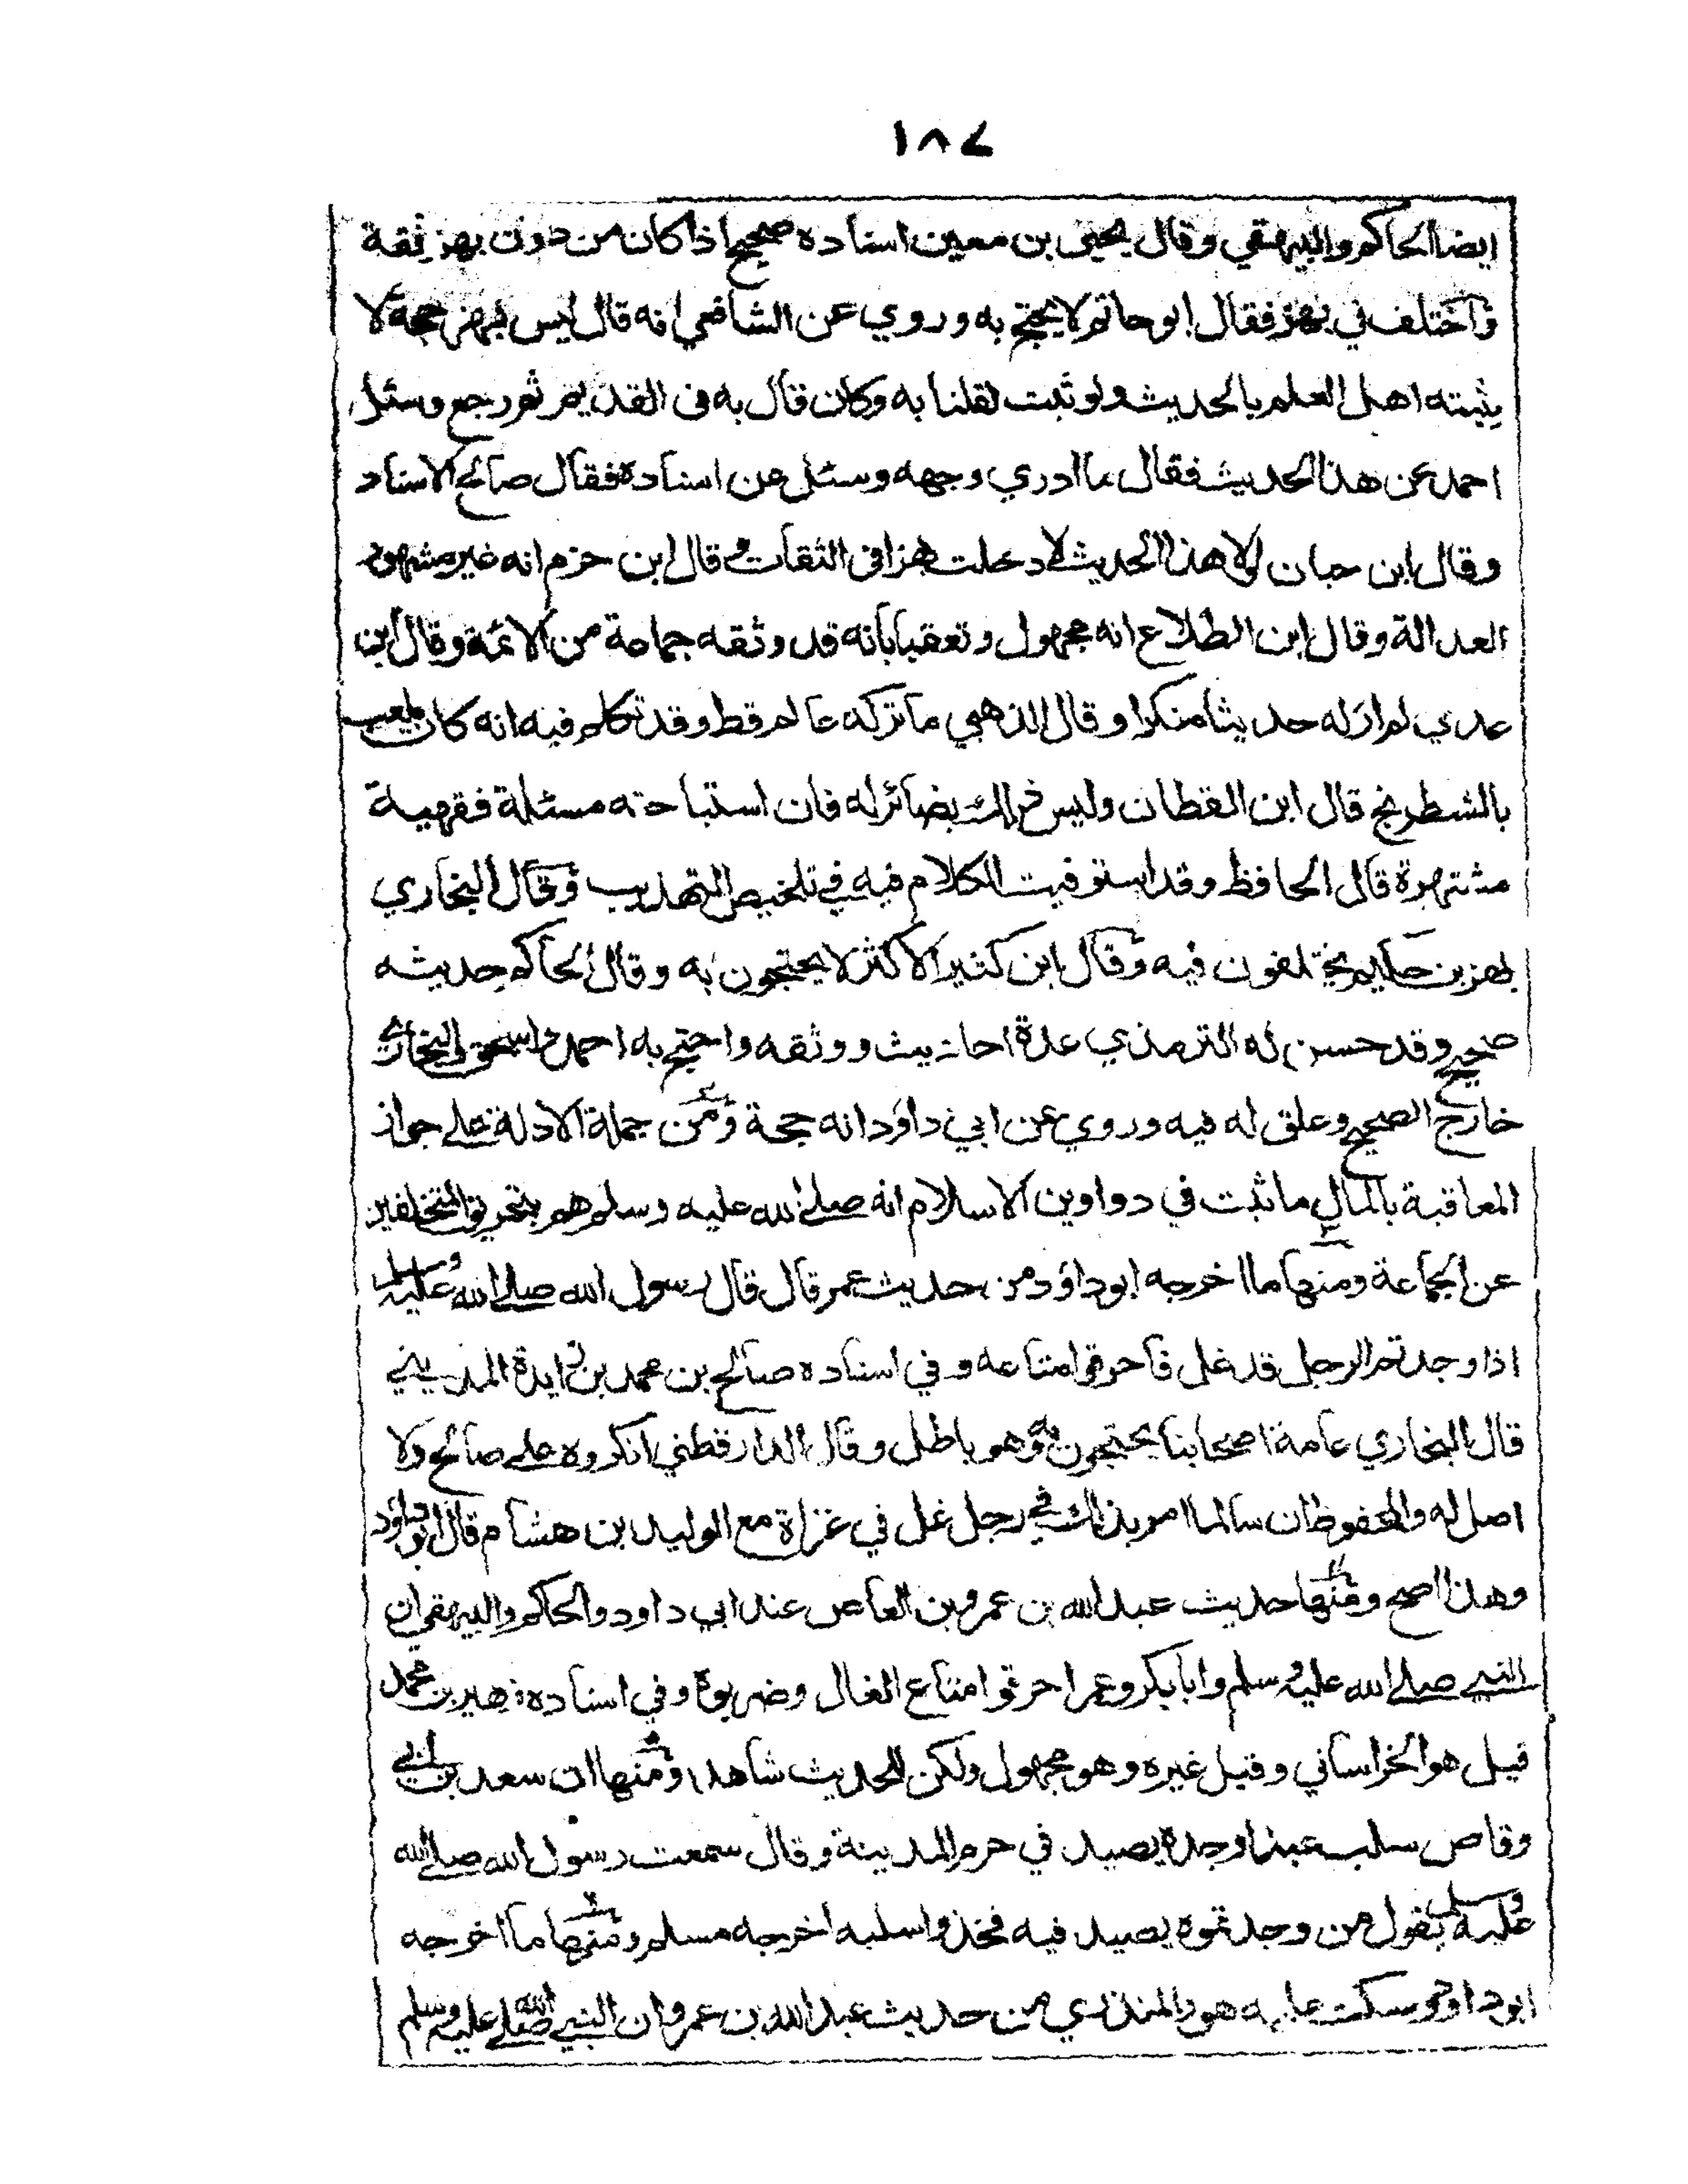 ١٨٧
ايضا الحاكم والبيهقي وقال يحيى بن معين اسناده صحيح اذا كان من دون بهز ثقة
واختلف في بهز فقال ابو حاتم لا يحتج به وروي عن الشافعي انه قال ليس بهز حجة لا
يثبته اهل العلم بالحديث ولو ثبت لقلنا به وكان قال به فى القديم ثم رجع وسئل
احمد عن هذا الحديث فقال ما ادري وجهه وسئل عن اسناده فقال صالح الاسناد
وقال ابن حبان لولا هذا الحديث لادخلت بهزا فى الثقات وقال ابن حزم انه غير مشهور
العدالة وقال ابن الطلاع انه مجهول وتعقبا بانه قد وثقه جماعة من الائمة وقال ابن
عدي لم ار له حديثا منكرا وقال الذهبي ما تركه عالم قط وقد تكلم فيه انه كان يلعب
بالشطرنج قال ابن القطان وليس ذلك بضائر له فان استباحته مسئلة فقهية
مشتهرة قال الحافظ وقد استوفيت الكلام فيه في تلخيص التهذيب وقال البخاري
بهز بن حكيم يختلفون فيه وقال ابن كثير الاكثر لا يحتجون به وقال الحاكم حديثه
صحيح وقد حسن له الترمذي عدة احاديث ووثقه واحتج به احمد واسحق والبخاري
خارج الصحيح وعلق له فيه وروي عن ابي داؤد انه حجة ومن جملة الادلة على جواز
المعاقبة بالمال ما ثبت في دواوين الاسلام انه صلى الله عليه وسلم هم بتحريق المتخلفين
عن الجماعة ومنها ما اخرجه ابو داؤد من حديث عمر قال قال رسول الله صلى الله عليه وسلم
اذا وجدتم الرجل قد غل فاحرقوا متاعه وفي اسناده صالح بن محمد بن زايدة المديني
قال البخاري عامة اصحابنا يحتجون به وهو باطل وقال الدارقطني انكروه على صالح ولا
اصل له والمحفوظ ان سالما امر بذلك في رجل غل في غزاة مع الوليد بن هشام قال ابو داؤد
وهذا اصح ومنها حديث عبد الله بن عمرو بن العاص عند ابي داود والحاكم والبيهقي ان
النبي صلى الله عليه وسلم وابا بكر وعمر احرقوا متاع الغال وضربوه وفي اسناده زهير بن محمد
قيل هو الخراساني وقيل غيره وهو مجهول ولكن للحديث شاهد ومنها ان سعد بن ابي
وقاص سلب عبدا وجده يصيد في حرم المدينة وقال سمعت رسول الله صلى الله
عليه وسلم يقول من وجدتموه يصيد فيه فخذوا سلبه اخرجه مسلم ومنها ما اخرجه
ابو داود وسكت عليه هو والمنذري من حديث عبد الله بن عمرو ان النبي صلى الله عليه وسلم